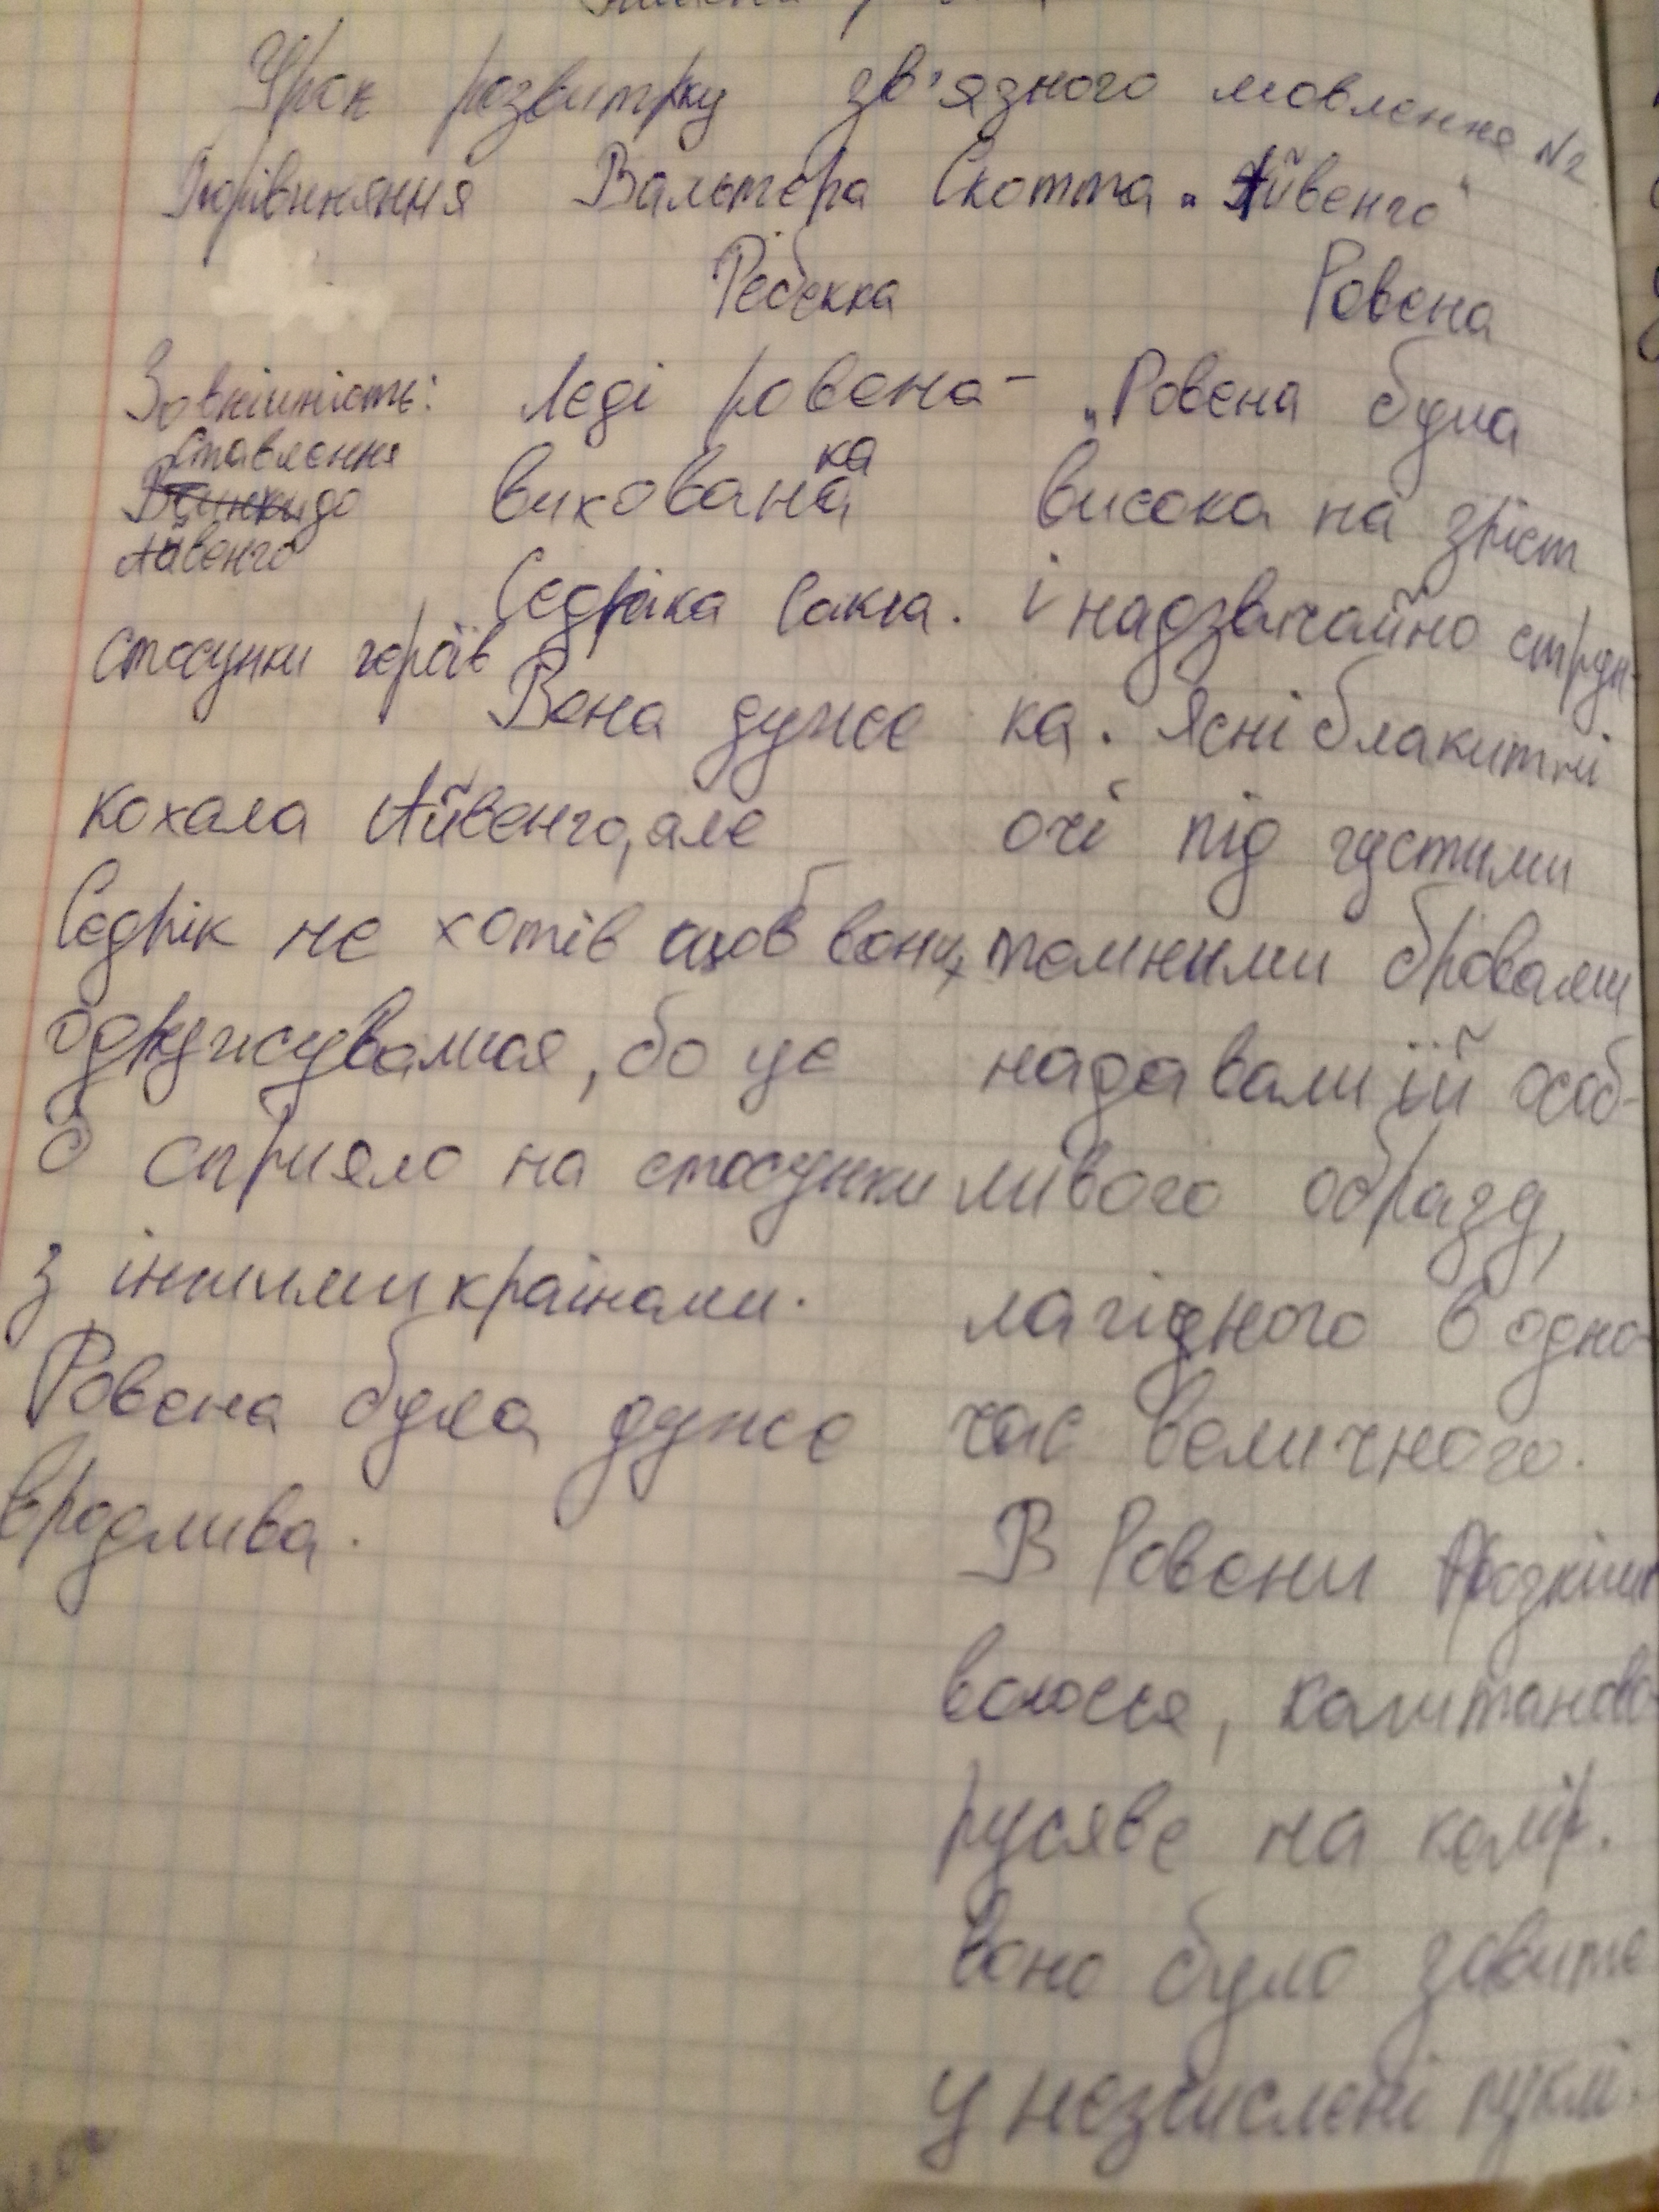 Урок розвитку зв'язного мовлення №2
Порівняння Вальтера Скотта „Айвенго"
Ребекка Ровена
Зовнішність:
Ставлення
до
Айвенго
стосунки героїв
Леді ровена -
вихованка
Седріка Сакса.
Вона дуже
кохала Айвенго, але
Седрік не хотів щоб вони
одружувалися, бо це
сприяло на стосунки
з іншими країнами.
Ровена була дуже
вродлива.
„Ровена була
висока на зріст
і надзвичайно струн-
ка. Ясні блакитні
очі під густими
темними бровами
надавали їй особ-
ливого образу,
лагідного й одно-
час величного.
В Ровени розкішне
волосся, каштаново-
русяве на колір.
Воно було завите
у незчислені